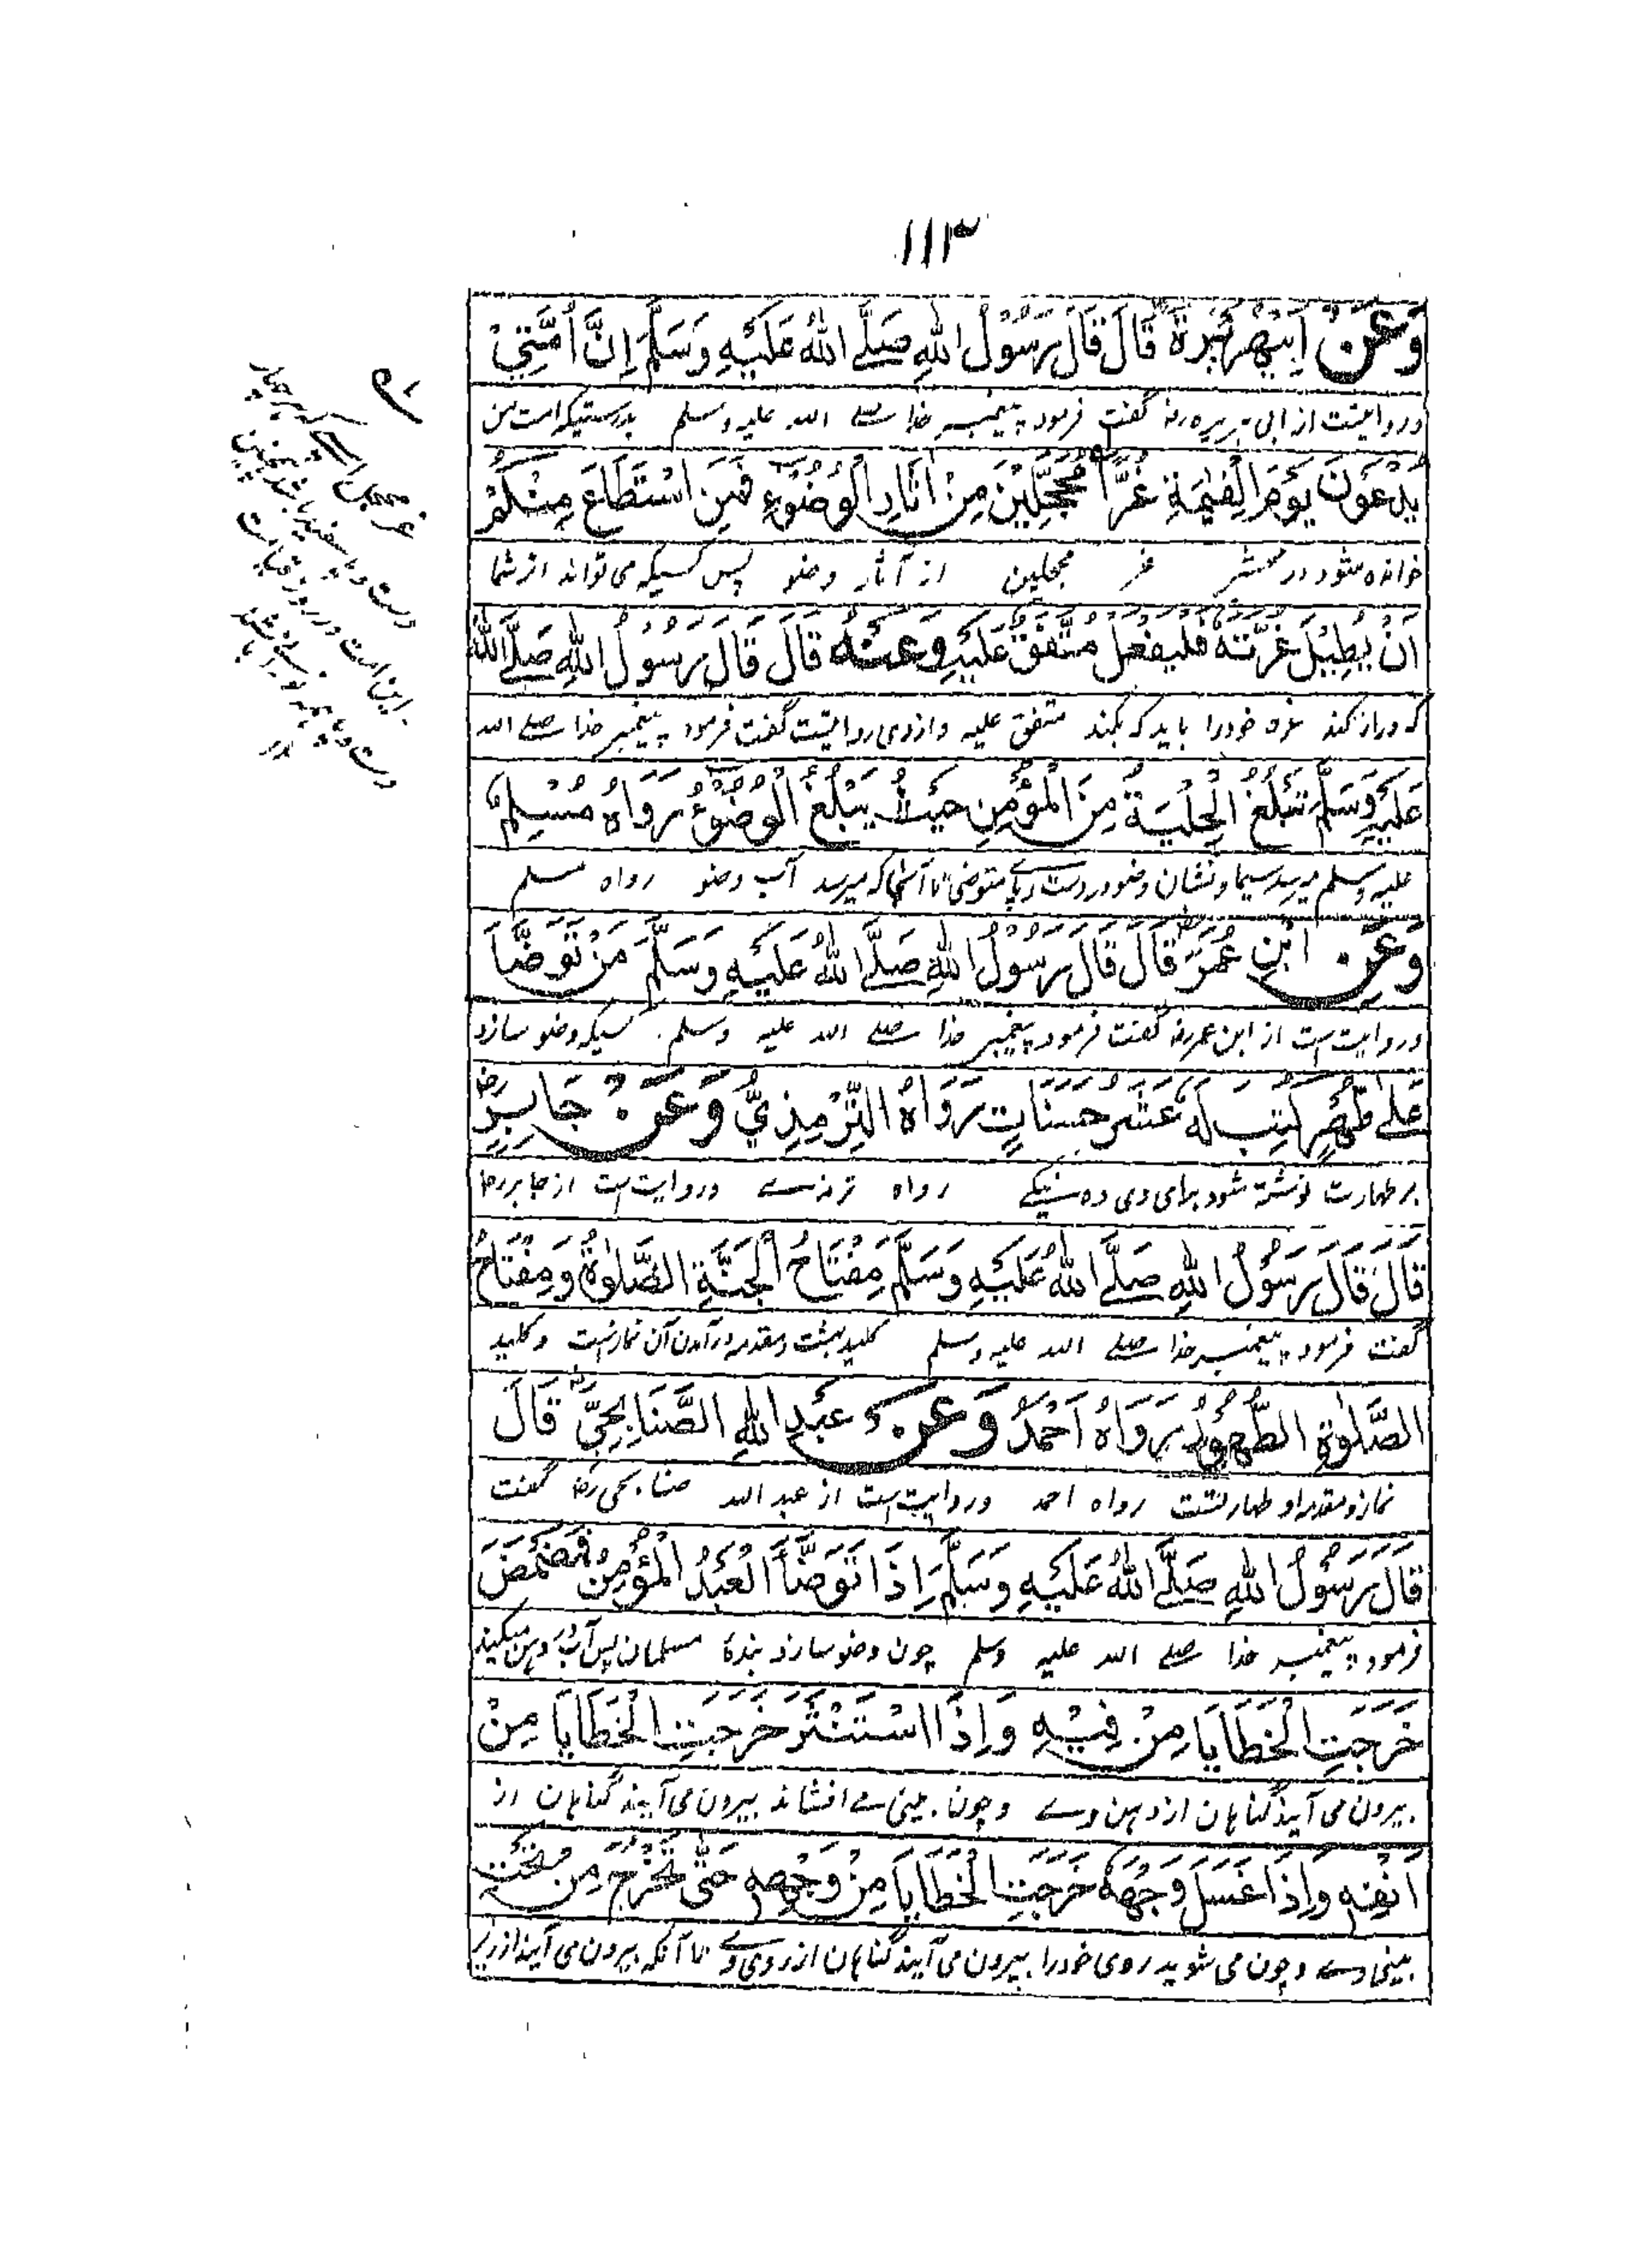 ۱۱۳
وَعَنْ اَبِيْ هُرَيْرَةَ قَالَ قَالَ رَسُوْلُ اللهِ صَلَّے اللهُ عَلَيْهِ وَسَلَّمَ اِنَّ اُمَّتِيْ
وروایتست از ابی ہریرہ رضہ گفت فرمود پیغمبر خدا صلے اللہ علیہ وسلم بدرستیکہ امت من
يُدْعَوْنَ يَوْمَ الْقِيٰمَةِ غُرًّا مُحَجَّلِيْنَ مِنْ اٰثَارِ الْوُضُوْءِ فَمَنِ اسْتَطَاعَ مِنْكُمْ
خواندہ شود در محشر غر محجلین از آثار وضو پس کسیکہ می تواند از شما
اَنْ يُطِيْلَ غُرَّتَهُ فَلْيَفْعَلْ مُتَّفَقٌ عَلَيْهِ وَعَنْهُ قَالَ قَالَ رَسُوْلُ اللهِ صَلَّے اللهُ
کہ دراز کند غرہ خود را باید کہ بکند متفق علیہ و از وی روایتست گفت فرمود پیغمبر خدا صلے اللہ
عَلَيْهِ وَسَلَّمَ تَبْلُغُ الْحِلْيَةُ مِنَ الْمُؤْمِنِ حَيْثُ يَبْلُغُ الْوُضُوْءُ رَوَاهُ مُسْلِمٌ
علیہ وسلم میرسد سیما و نشان وضو در دست و پاے متوضی تا آنجا کہ میرسد آب وضو رواہ مسلم
وَعَنِ ابْنِ عُمَرَ قَالَ قَالَ رَسُوْلُ اللهِ صَلَّے اللهُ عَلَيْهِ وَسَلَّمَ مَنْ تَوَضَّأَ
وروایت ست از ابن عمر رضہ گفت فرمود پیغمبر خدا صلے اللہ علیہ وسلم کسیکہ وضو سازد
عَلٰے طُهْرٍ كُتِبَ لَهُ عَشْرُ حَسَنَاتٍ رَوَاهُ التِّرْمِذِيُّ وَعَنْ جَابِرٍ رض
بر طہارت نوشتہ شود برای وی دہ نیکے رواہ ترمذے وروایت ست از جابر رضا
قَالَ قَالَ رَسُوْلُ اللهِ صَلَّے اللهُ عَلَيْهِ وَسَلَّمَ مِفْتَاحُ الْجَنَّةِ الصَّلٰوةُ وَمِفْتَاحُ
گفت فرمود پیغمبر خدا صلے اللہ علیہ وسلم کلید بہشت و مقدمہ در آمدن آن نماز ست و کلید
الصَّلٰوةِ الطُّهُوْرُ رَوَاهُ اَحْمَدُ وَعَنْ عَبْدِ اللهِ الصُّنَابِحِيِّ قَالَ
نماز و مقدمہ او طہارتست رواہ احمد وروایت ست از عبد اللہ صنابحی رضا گفت
قَالَ رَسُوْلُ اللهِ صَلَّے اللهُ عَلَيْهِ وَسَلَّمَ اِذَا تَوَضَّأَ الْعَبْدُ الْمُؤْمِنُ فَمَضْمَضَ
فرمود پیغمبر خدا صلے اللہ علیہ وسلم چون وضو سازد بندۂ مسلمان پس آب در دہن میکند
خَرَجَتِ الْخَطَايَا مِنْ فِيْهِ وَاِذَا اسْتَنْثَرَ خَرَجَتِ الْخَطَايَا مِنْ
بیرون می آیند گناہان از دہن وے و چون بینی مے افشاند بیرون می آیند گناہان از
اَنْفِهِ وَاِذَا غَسَلَ وَجْهَهُ خَرَجَتِ الْخَطَايَا مِنْ وَجْهِهِ حَتّٰى تَخْرُجَ مِنْ تَحْتِ
بینی وے و چون می شوید روی خود را بیرون می آیند گناہان از روی وے تا آنکہ بیرون می آیند از زیر
غر محجل
دست و پا سفید باشد
این است در روز قیامت
دست و پا